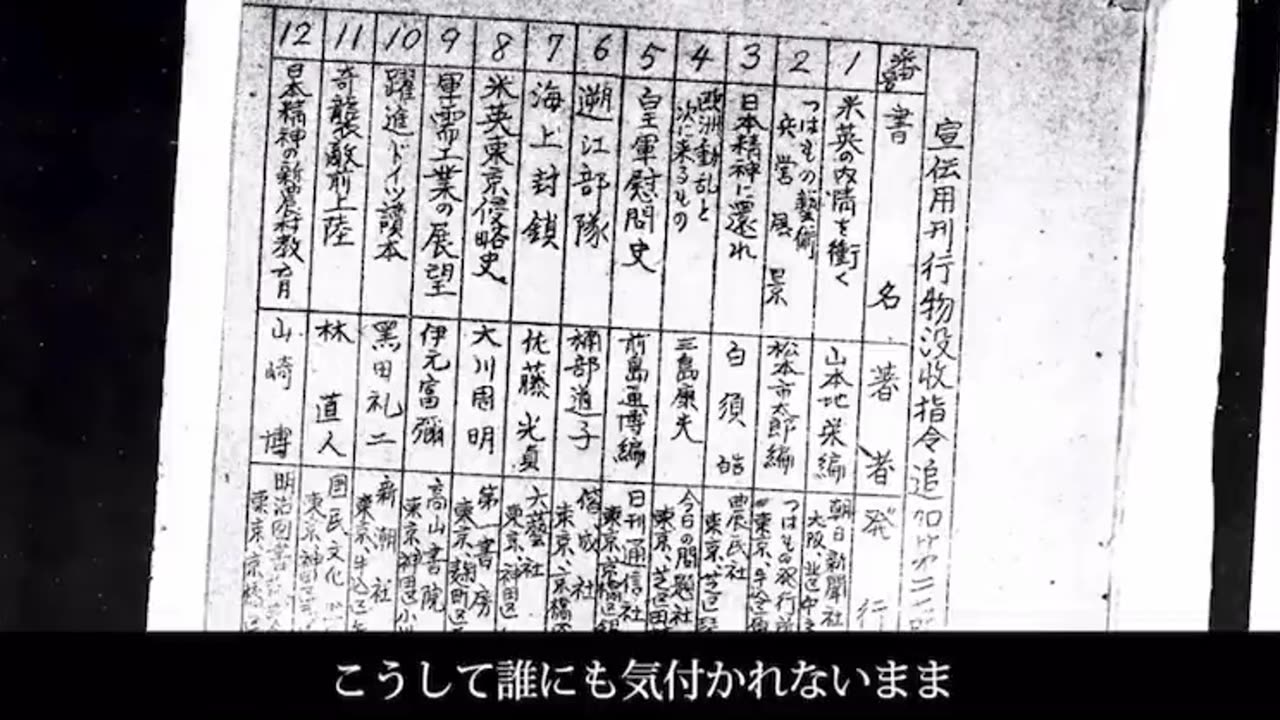 宣伝用刊行物没収指令追加第二
番号 書名 著者 発行
1 米英の内情を衝く 山本地栄編 朝日新聞社 大阪、北区中
2 つはもの藝術 兵営風景 松本市太郎編 つはもの発行所 東京、牛込区
3 日本精神に還れ 白須皓 農民社 東京、芝区
4 欧洲動乱と次に来るもの 三島康夫 今日の問題社 東京、芝区田
5 皇軍慰問史 前島通博編 日刊通信社 東京、京橋区銀
6 遡江部隊 偕成社 東京、京橋
7 海上封鎖 佐藤光貞 六藝社 東京、神田区
8 米英東亰侵略史 大川周明 第一書房 東京、麹町区
9 軍需工業の展望 伊元富彌 高山書院 東京、神田区小川
10 躍進ドイツ讀本 黒田礼二 新潮社 東京、牛込区
11 奇襲敵前上陸 林直人 国民文化 東京、神田区
12 日本精神の新農村教育 山崎博 明治図書 東京、京橋
こうして誰にも気付かれないまま